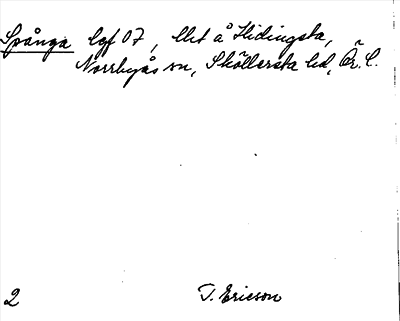 Spånga lgf 07, Ulet å Hidingsta,
Norrbyås sn, Sköllersta hd, Ör. l.
2 T. Ericson